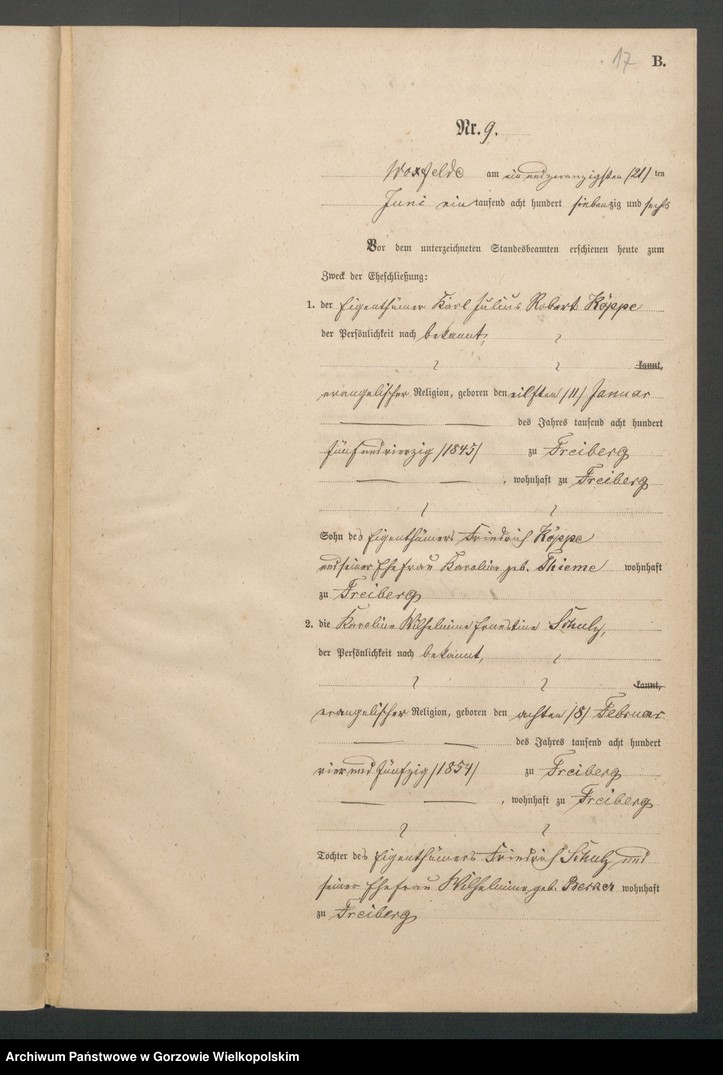 17 B.
Nr. 9.
Woxfelde am ein und zwanzigsten /21/ ten
Juni ein tausend acht hundert siebenzig und sechs
Vor dem unterzeichneten Standesbeamten erschienen heute zum
Zweck der Eheschließung:
1. der Eigenthümer Karl Julius Robert Köppe
der Persönlichkeit nach bekannt,
kannt,
evangelischer Religion, geboren den eilften /11/ Januar
des Jahres tausend acht hundert
fünf und vierzig /1845/ zu Freiberg
, wohnhaft zu Freiberg
Sohn des Eigenthümers Friedrich Köppe
und seiner Ehefrau Karoline geb. Thieme wohnhaft
zu Freiberg
2. die Karoline Wilhelmine Ernestine Schulz,
der Persönlichkeit nach bekannt,
kannt,
evangelischer Religion, geboren den achten /8/ Februar
des Jahres tausend acht hundert
vier und fünfzig /1854/ zu Freiberg
, wohnhaft zu Freiberg
Tochter des Eigenthümers Friedrich Schulz und
seiner Ehefrau Wilhelmine geb. wohnhaft
zu Freiberg
Archiwum Państwowe w Gorzowie Wielkopolskim